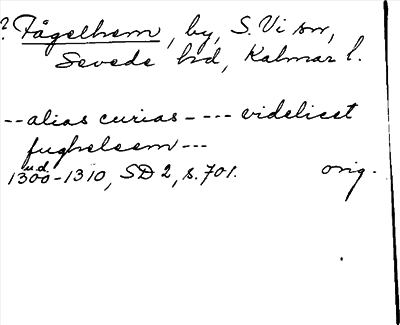 ? Fågelhem, by, S. Vi sn,
Sevede hd, Kalmar l.
-- alias curias ---- videlicet
fughelsem ---
1300-1310, SD 2, s. 701. orig.